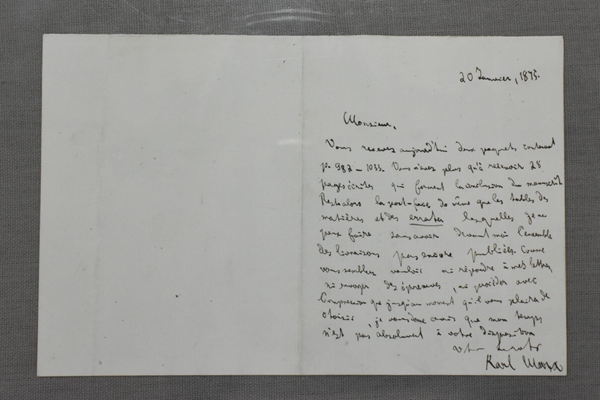 20 Janvier, 1875.
Monsieur,
Vous recevez aujourd'hui deux paquets contenant
p. 982 – 1033. Vous n'avez plus qu'à recevoir 28
pages écrites qui forment la conclusion du manuscrit
Reste alors la post-face de même que les tables des
matières et des errata lesquelles je ne
peux faire sans avoir devant moi l'ensemble
des livraisons pas encore publiées. Comme
vous semblez vouloir ni répondre à mes lettres,
ni envoyer des épreuves, ni procéder avec
l'impression que jusqu'au moment qu'il vous plaira de
choisir, je vous donne avis que mon temps
n'est pas absolument à votre disposition
Karl Marx